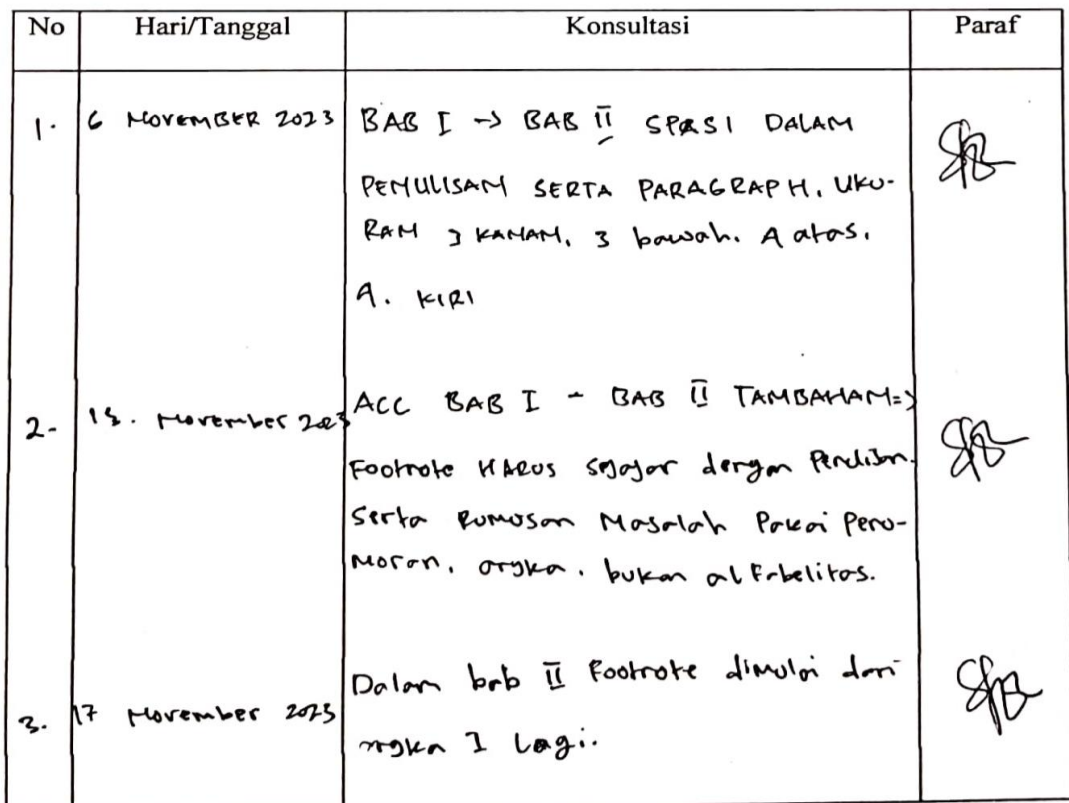 No Hari/Tanggal Konsultasi Paraf
1. 6 NOVEMBER 2023 BAB I -> BAB II SPASI DALAM
PENULISAN SERTA PARAGRAPH, UKU-
RAN 3 KANAN, 3 bawah. 4 atas.
4. KIRI
2- 13. November 2023 ACC BAB I - BAB II TAMBAHAN=>
Footnote HARUS sejajar dengan Penulisan.
Serta Rumusan Masalah Pakai Peno-
moran, angka, bukan alfabelitas.
3. 17 November 2023 Dalam bab II Footnote dimulai dari
angka 1 lagi.